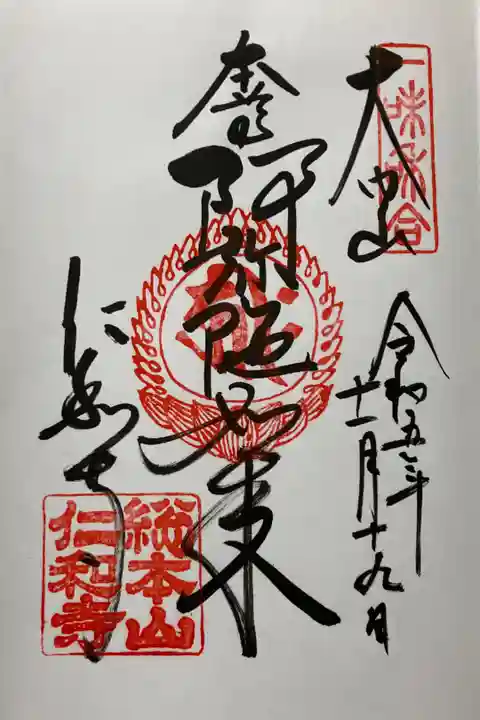 一味和合
大内山
令和五年
十一月十九日
阿弥陀如来
仁和寺
総本山
仁和寺